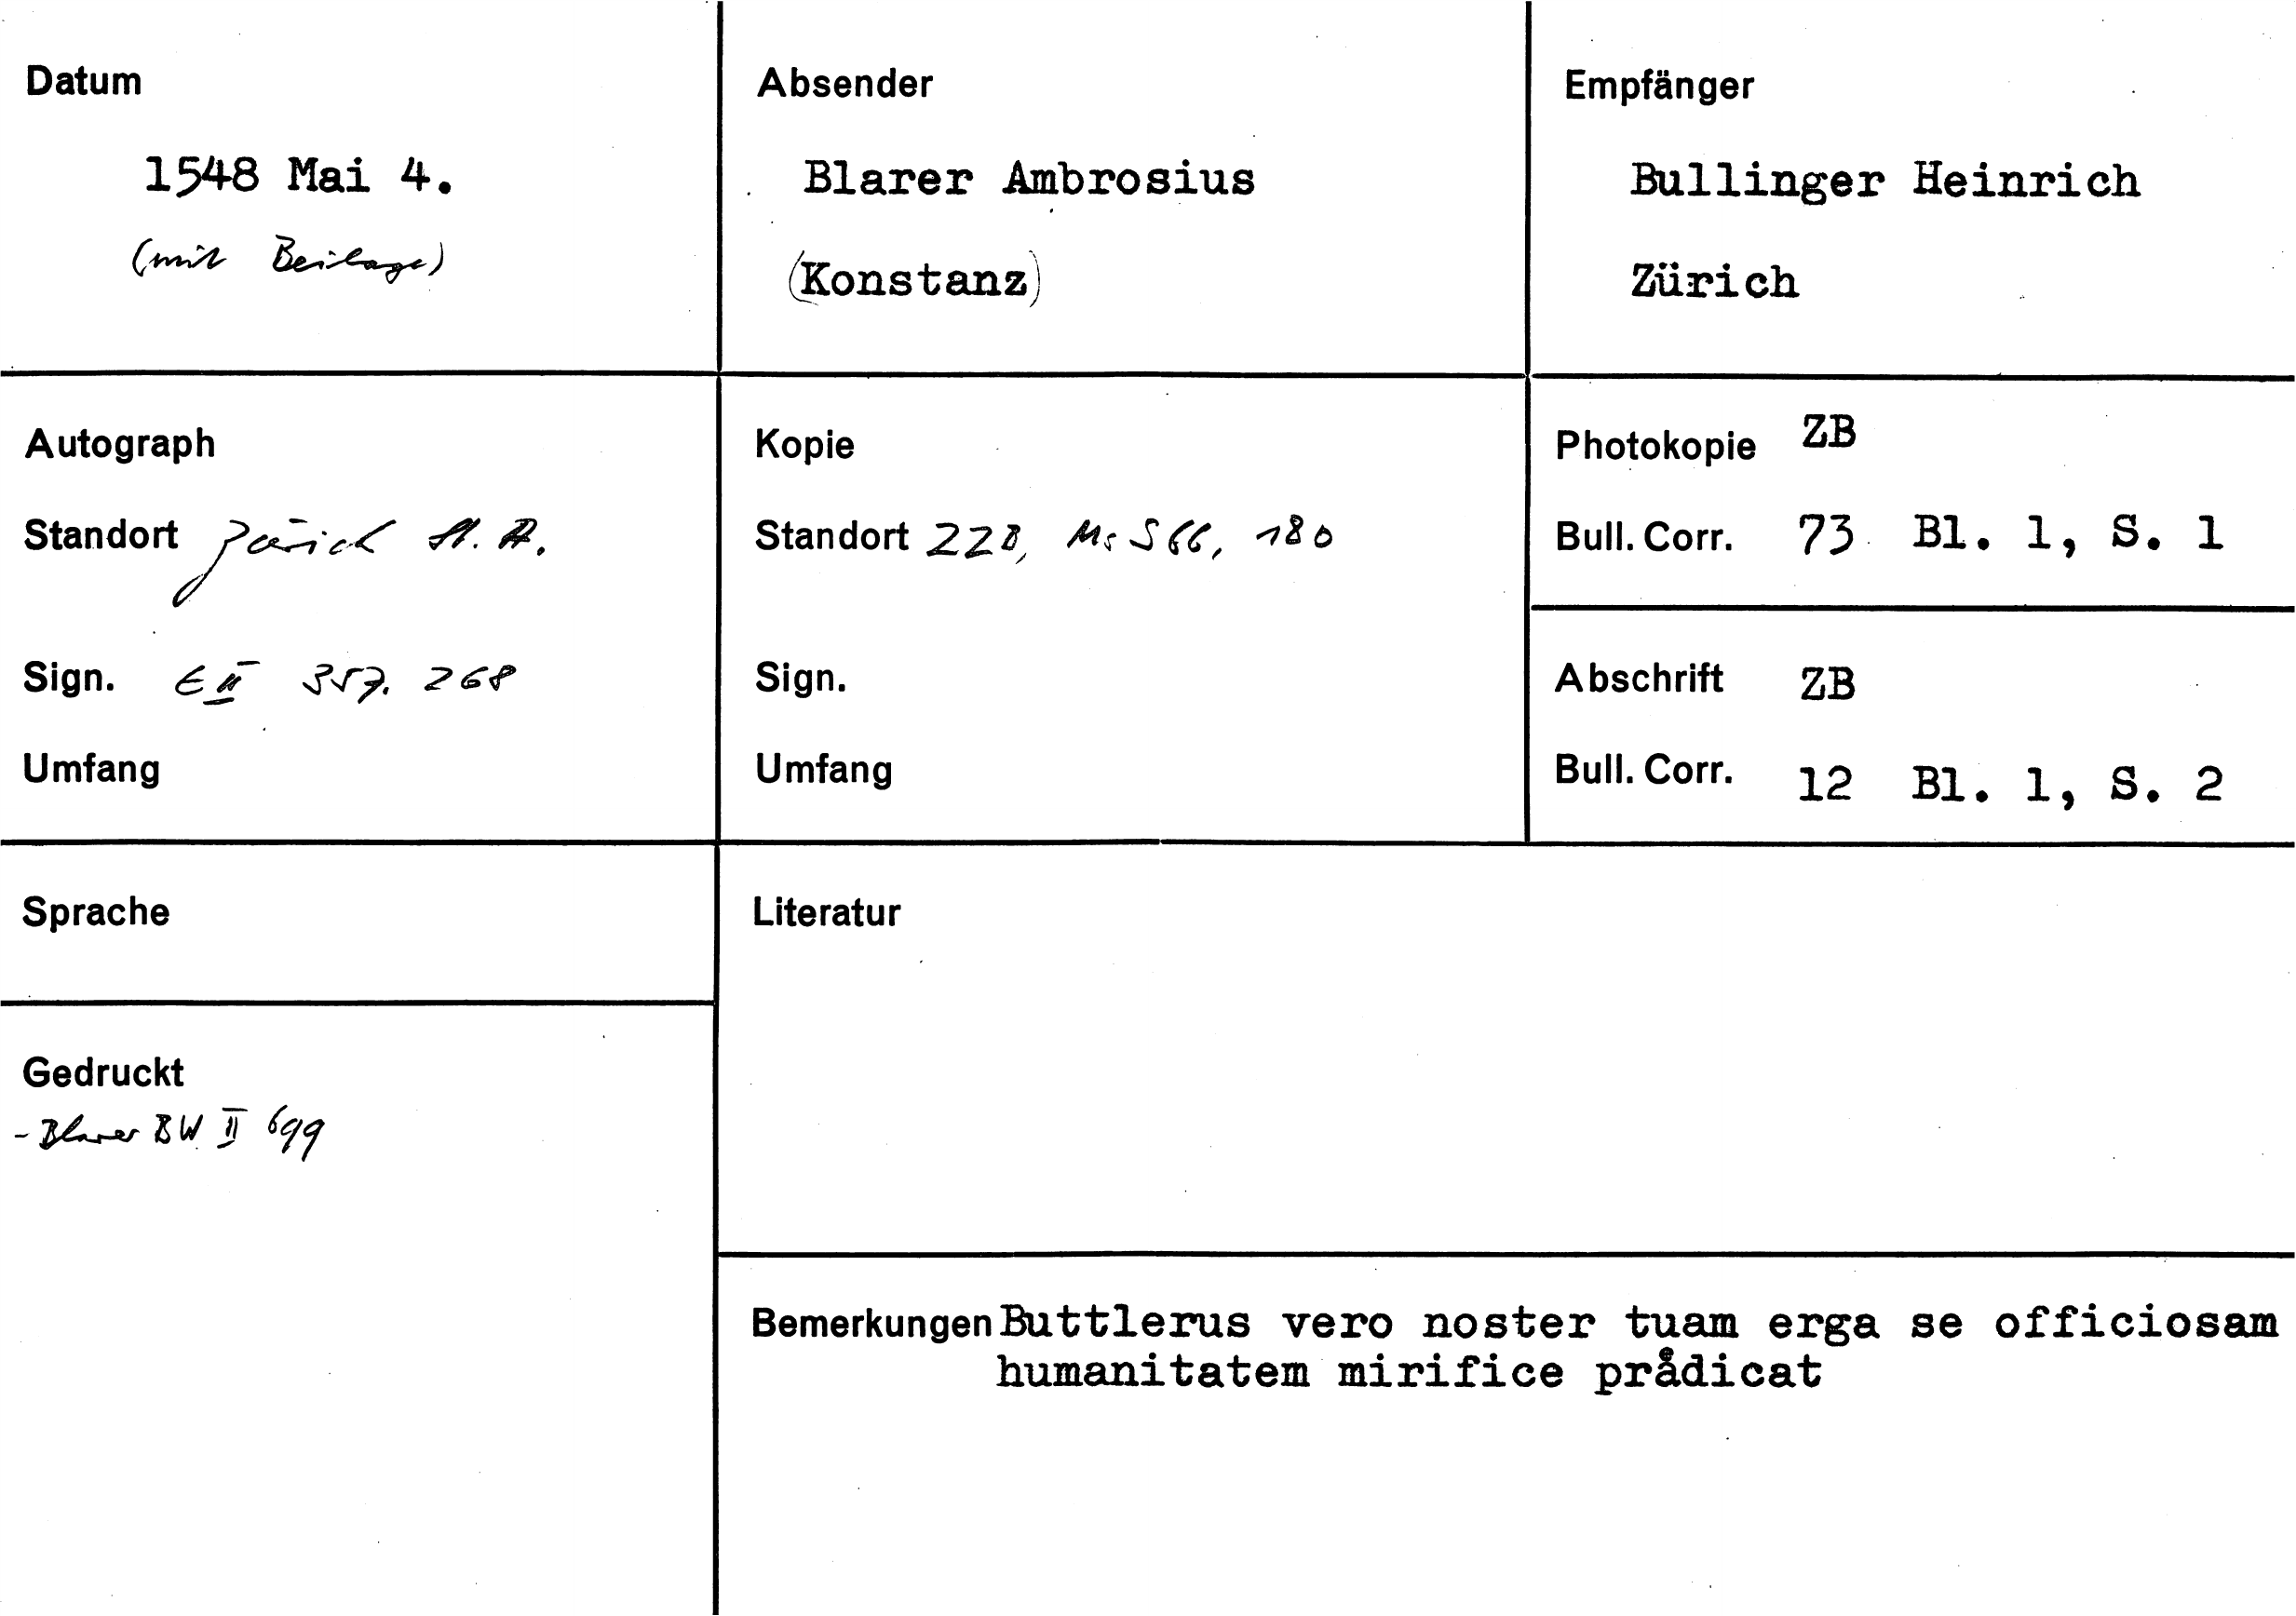 Datum
1548 Mai 4.
(mit Beilage)
Absender
Blarer Ambrosius
(Konstanz)
Empfänger
Bullinger Heinrich
Zürich
Autograph
Standort Zürich St. A.
Sign. E II 357. 268
Umfang
Kopie
Standort ZZB, Ms S 66, 180
Sign.
Umfang
Photokopie ZB
Bull. Corr. 73 Bl. 1, S. 1
Abschrift ZB
Bull. Corr. 12 Bl. 1, S. 2
Sprache
Gedruckt
- Blarer BW II 699
Literatur
Bemerkungen Buttlerus vero noster tuam erga se officiosam
humanitatem mirifice praͤdicat